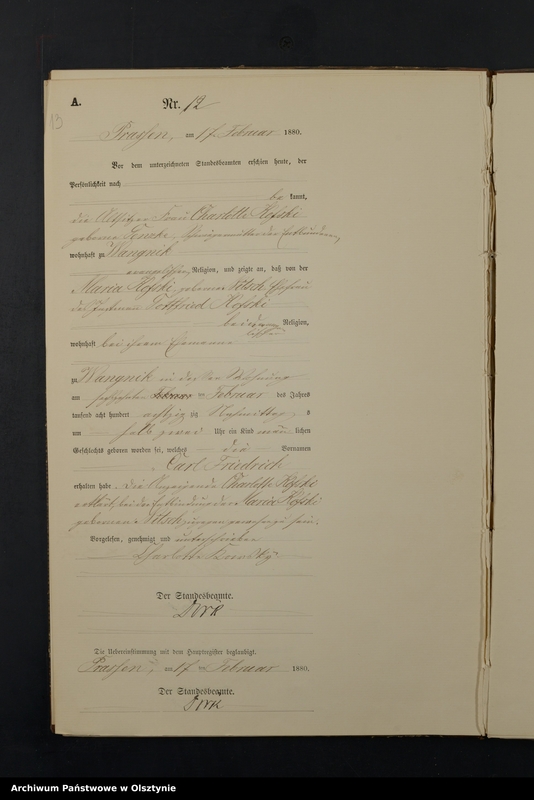 A.
Nr. 12
13
Prassen, am 17 Februar 1880.
Vor dem unterzeichneten Standesbeamten erschien heute, der
Persönlichkeit nach
be kannt,
die Altsitzer Frau Charlotte Hofski
geborene Schwiegermutter der Entbundenen,
wohnhaft zu Wangnik
evangelischer Religion, und zeigte an, daß von der
Maria Hofski geborene Ehefrau
des Instmann Gottfried Hofski
beide Religion,
wohnhaft bei ihrem Ehemanne
zu Wangnik in dessen Wohnung
am Februar des Jahres
tausend acht hundert achtzig Nachmittags
um halb zwei Uhr ein Kind männ lichen
Geschlechts geboren worden sei, welches die Vornamen
Carl Friedrich
erhalten habe. Die Anzeigende Charlotte Hofski
erklärt, bei der Entbindung der Maria Hofski
geborenen zugegen gewesen zu sein.
Vorgelesen, genehmigt und unterschrieben
Charlotte
Der Standesbeamte.
Dork
Die Uebereinstimmung mit dem Hauptregister beglaubigt.
Prassen, am 17 Februar 1880.
Der Standesbeamte.
Dork
Archiwum Państwowe w Olsztynie